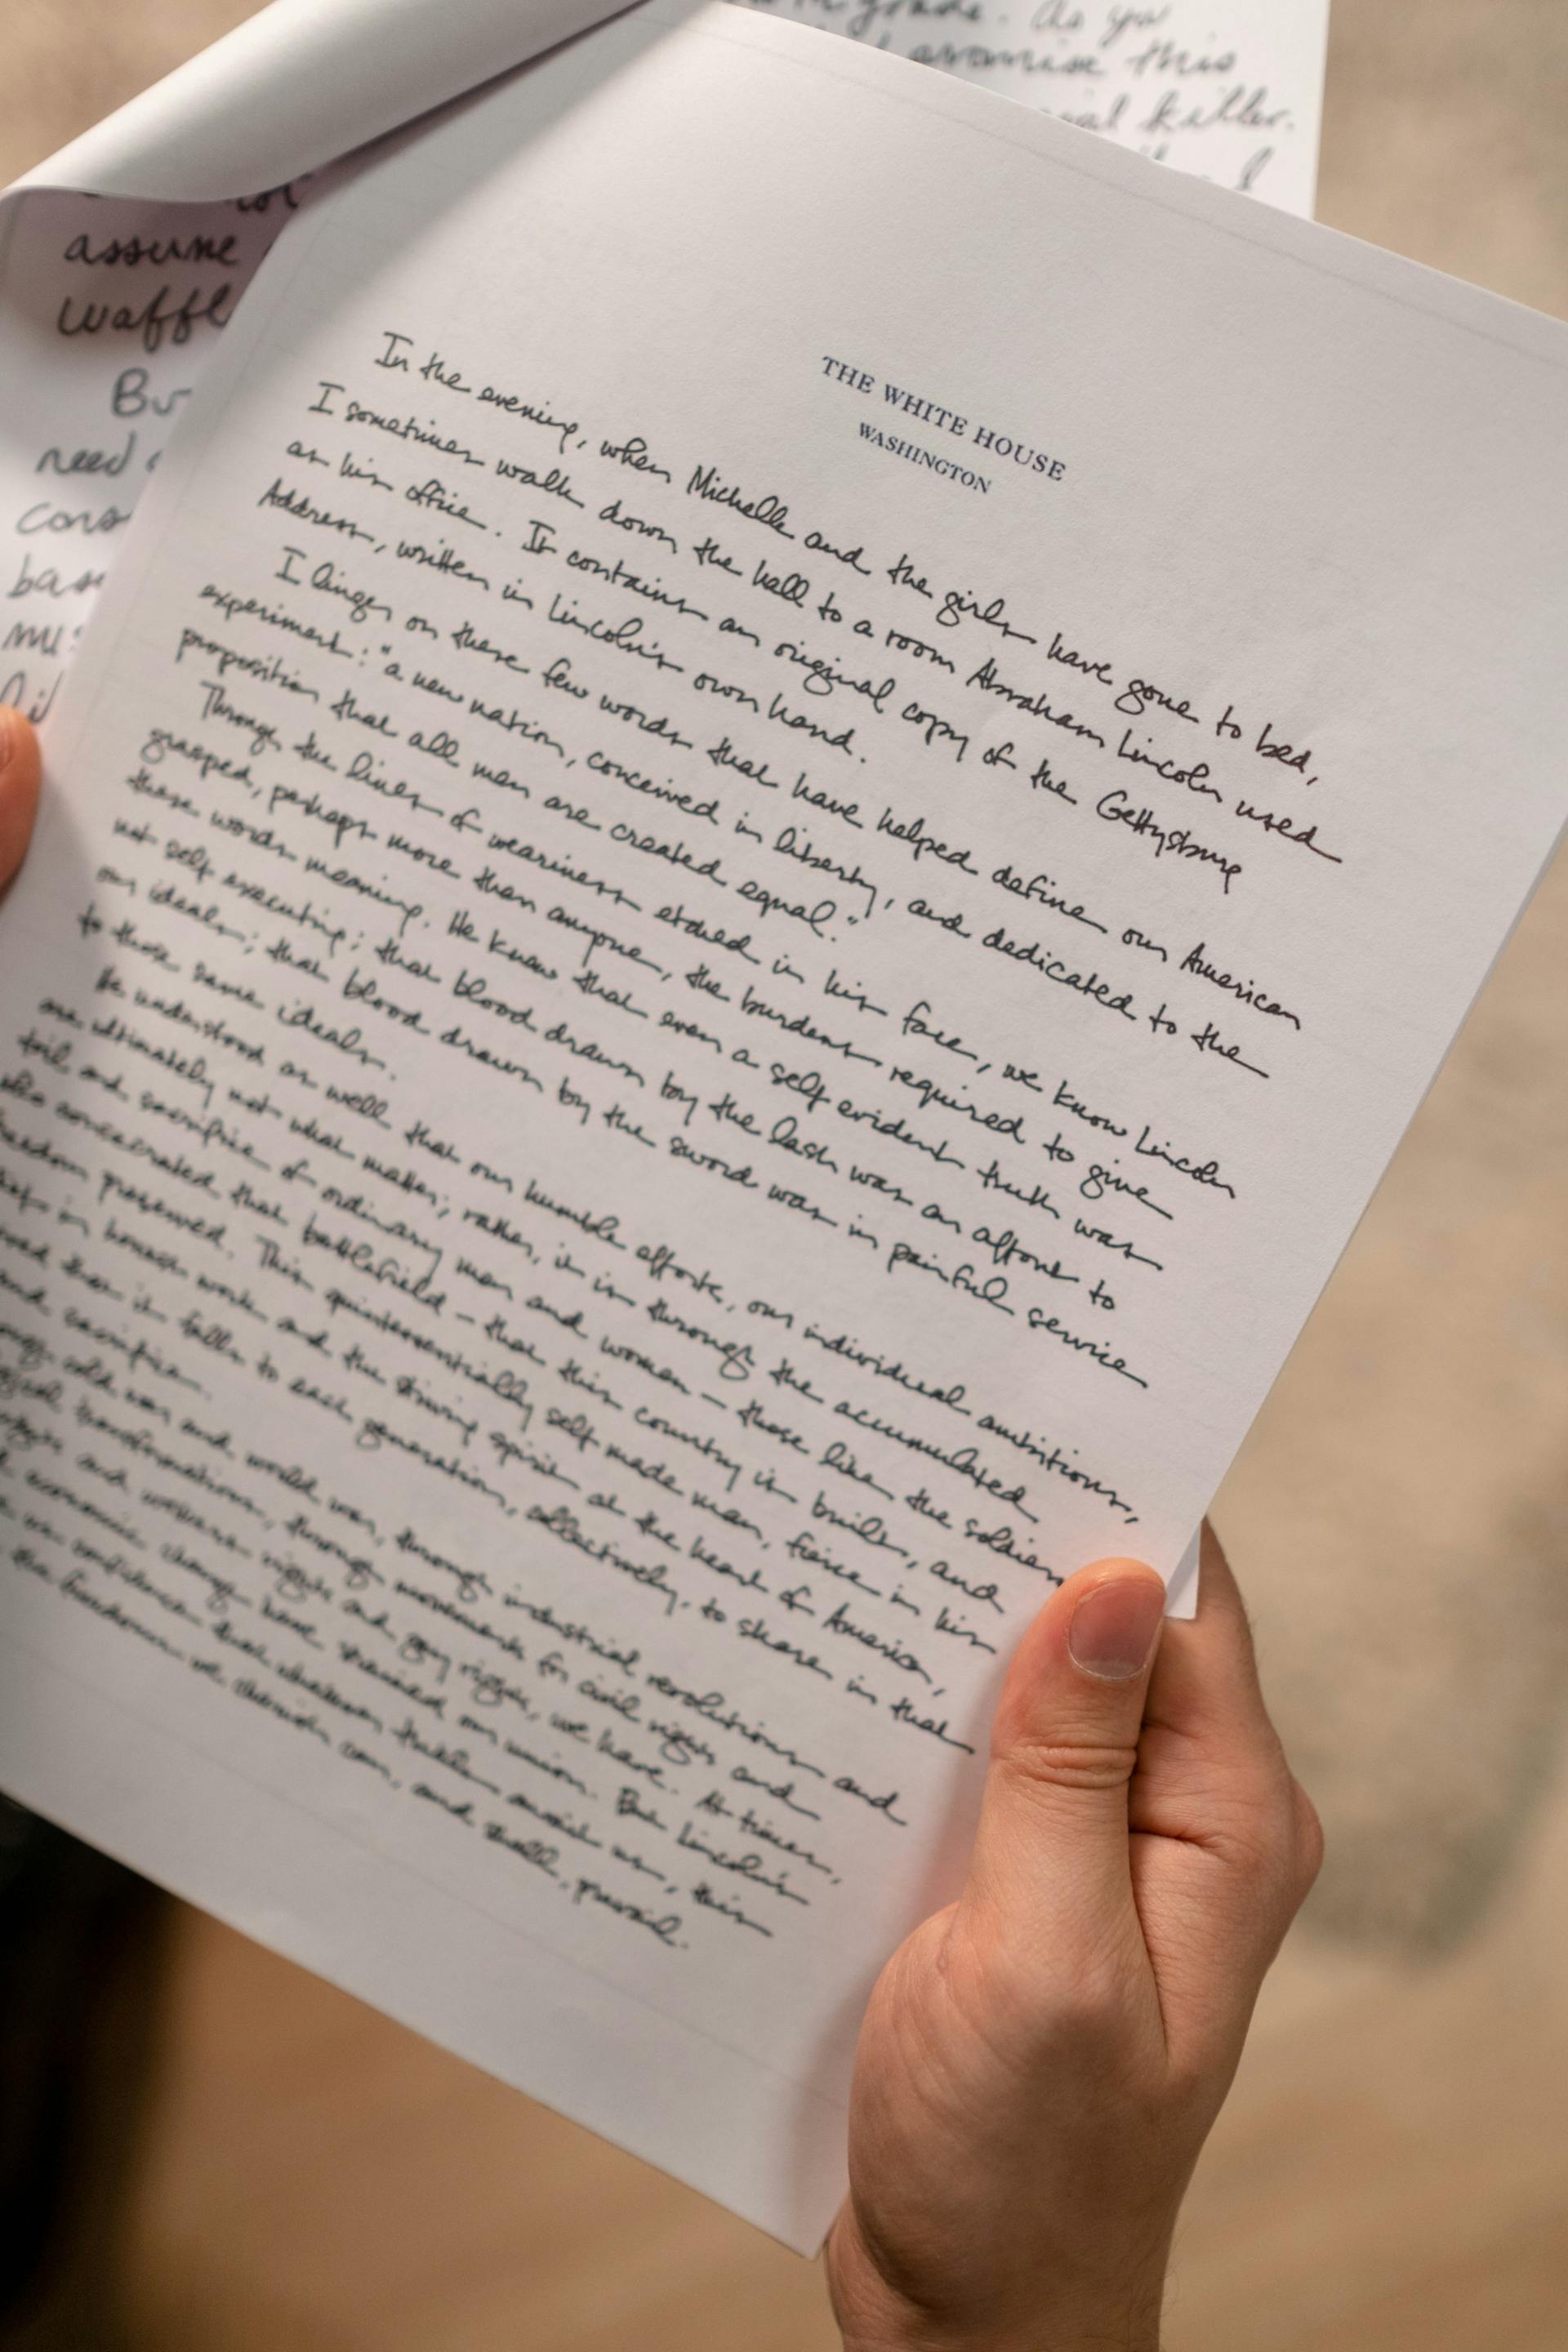 grade. As you
promise this
killer.
I
assume
waffl
Bu
need
cons
base
THE WHITE HOUSE
WASHINGTON
In the evening, when Michelle and the girls have gone to bed,
I sometimes walk down the hall to a room Abraham Lincoln used
as his office. It contains an original copy of the Gettysburg
Address, written in Lincoln's own hand.
I linger on these few words that have helped define our American
experiment: "a new nation, conceived in liberty, and dedicated to the
proposition that all men are created equal."
Through the lines of weariness etched in his face, we know Lincoln
grasped, perhaps more than anyone, the burdens required to give
these words meaning. He knew that even a self evident truth was
not self executing; that blood drawn by the lash was an affront to
our ideals; that blood drawn by the sword was in painful service
to those same ideals.
He understood as well that our humble efforts, our individual ambitions,
are ultimately not what matter; rather, it is through the accumulated
toil and sacrifice of ordinary men and women – those like the soldiers
who consecrated that battlefield – that this country is built, and
freedom preserved. This quintessentially self made man, fierce in his
belief in honest work and the striving spirit at the heart of America,
that it falls to each generation, collectively, to share in that
and sacrifice.
cold war and world war, through industrial revolutions and
transformations, through movements for civil rights and
and women's rights and gay rights, we have. At times,
economic change have strained our union. But Lincoln's
us confidence that whatever trials await us, this
the freedom we cherish can, and shall, prevail.